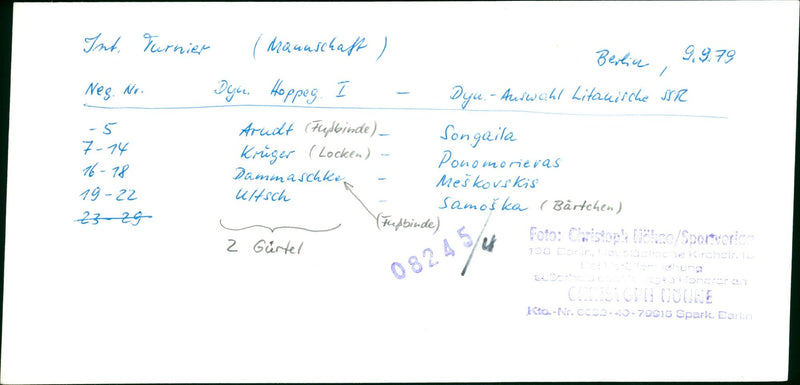 Int. Turnier (Mannschaft) Berlin, 9.9.79
Neg. Nr. Dyn. Hoppeg. I - Dyn.-Auswahl Litauische SSR
-5 Arndt (Fußbinde) - Songaila
7-14 Krüger (Locken) - Ponomorievas
16-18 Dammaschke - Meškovskis
19-22 Ultsch - Samoška (Bärtchen)
23-29 (Fußbinde)
2 Gürtel
08245/4
Foto: Christoph Höhne/Sportverlag
CHRISTOPH HÖHNE
Kto.-Nr. Spark. Berlin